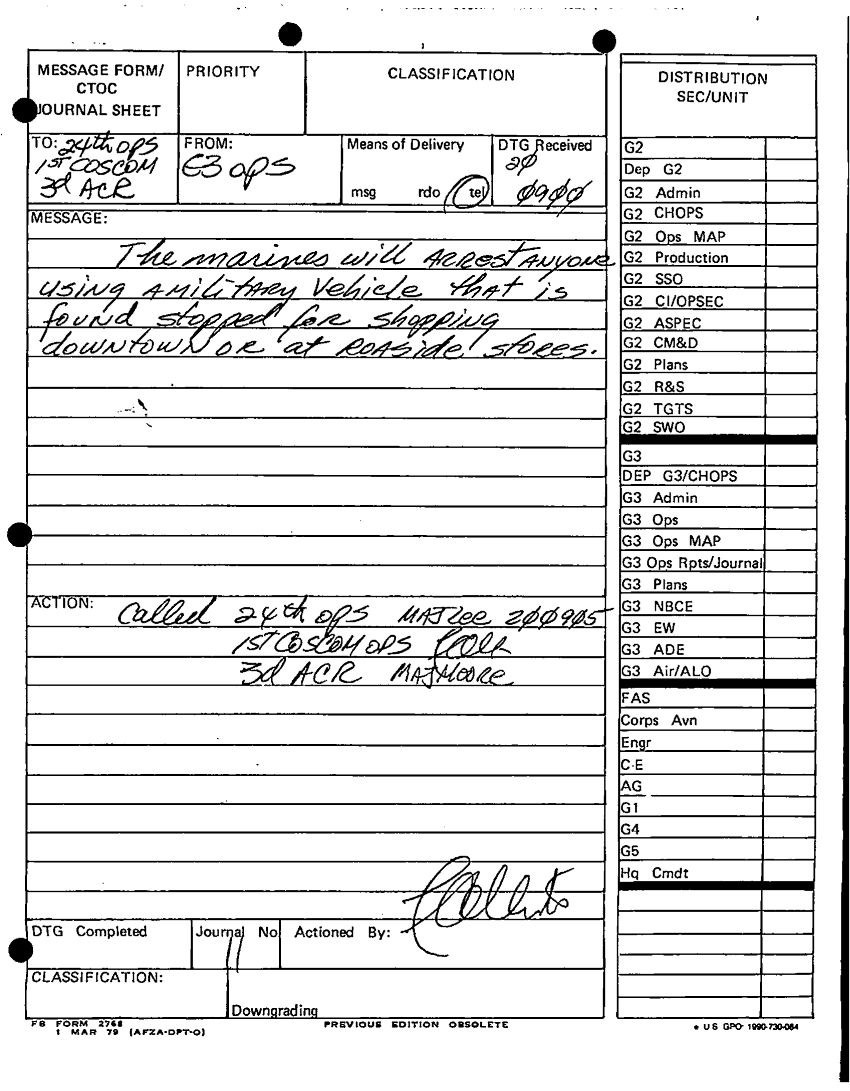 MESSAGE FORM/
CTOC
JOURNAL SHEET
PRIORITY
CLASSIFICATION
TO: 24th OPS
1ST COSCOM
3d ACR
FROM:
G3 OPS
Means of Delivery
msg rdo tel
DTG Received
20
0900
MESSAGE:
The marines will ARREST ANYONE
using A MILITARY Vehicle that is
found stopped for shopping
downtown OR at ROASide stores.
ACTION: Called 24th OPS MAJ Lee 200905
1ST COSCOM OPS
3d ACR MAJ MOORE
DTG Completed
Journal No
11
Actioned By:
CLASSIFICATION:
Downgrading
FB FORM 2768
1 MAR 79 (AFZA-DPT-O)
PREVIOUS EDITION OBSOLETE
DISTRIBUTION
SEC/UNIT
G2
Dep G2
G2 Admin
G2 CHOPS
G2 Ops MAP
G2 Production
G2 SSO
G2 CI/OPSEC
G2 ASPEC
G2 CM&D
G2 Plans
G2 R&S
G2 TGTS
G2 SWO
G3
DEP G3/CHOPS
G3 Admin
G3 Ops
G3 Ops MAP
G3 Ops Rpts/Journal
G3 Plans
G3 NBCE
G3 EW
G3 ADE
G3 Air/ALO
FAS
Corps Avn
Engr
C-E
AG
G1
G4
G5
Hq Cmdt
* US GPO: 1990-730-084